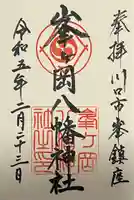 奉拝 川口市峯鎮座
峯ヶ岡八幡神社
令和五年二月二十三日